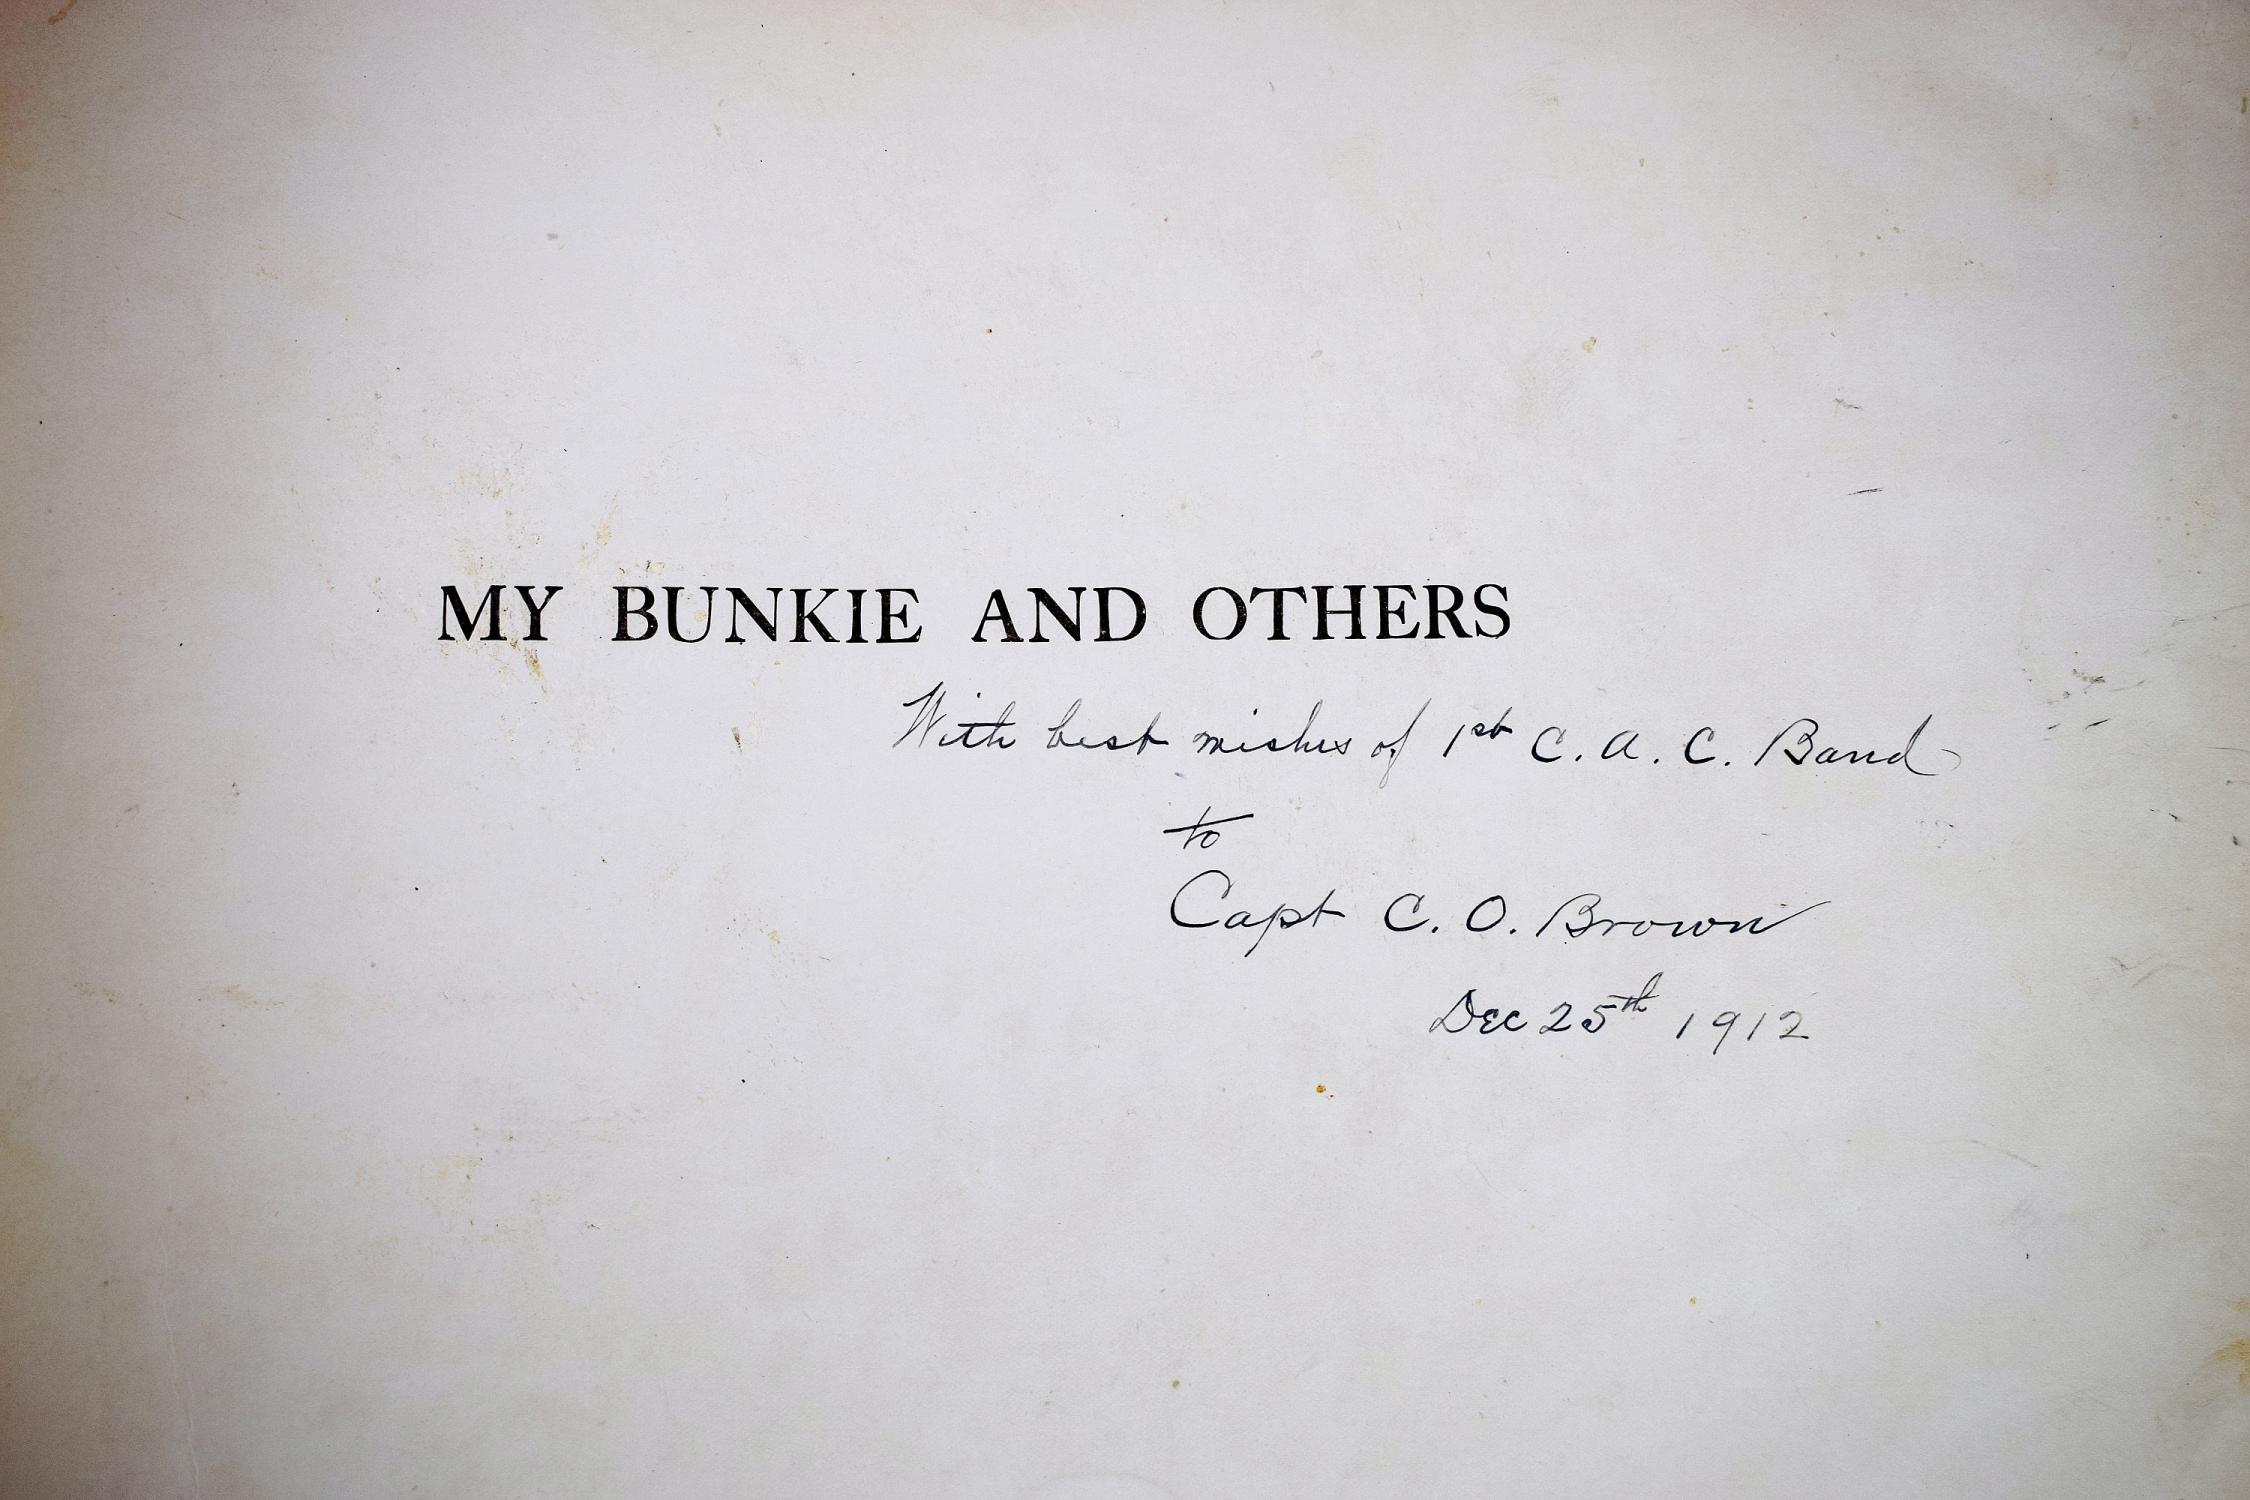 MY BUNKIE AND OTHERS
With best wishes of 1st C. A. C. Band
to
Capt C. O. Brown
Dec 25th 1912